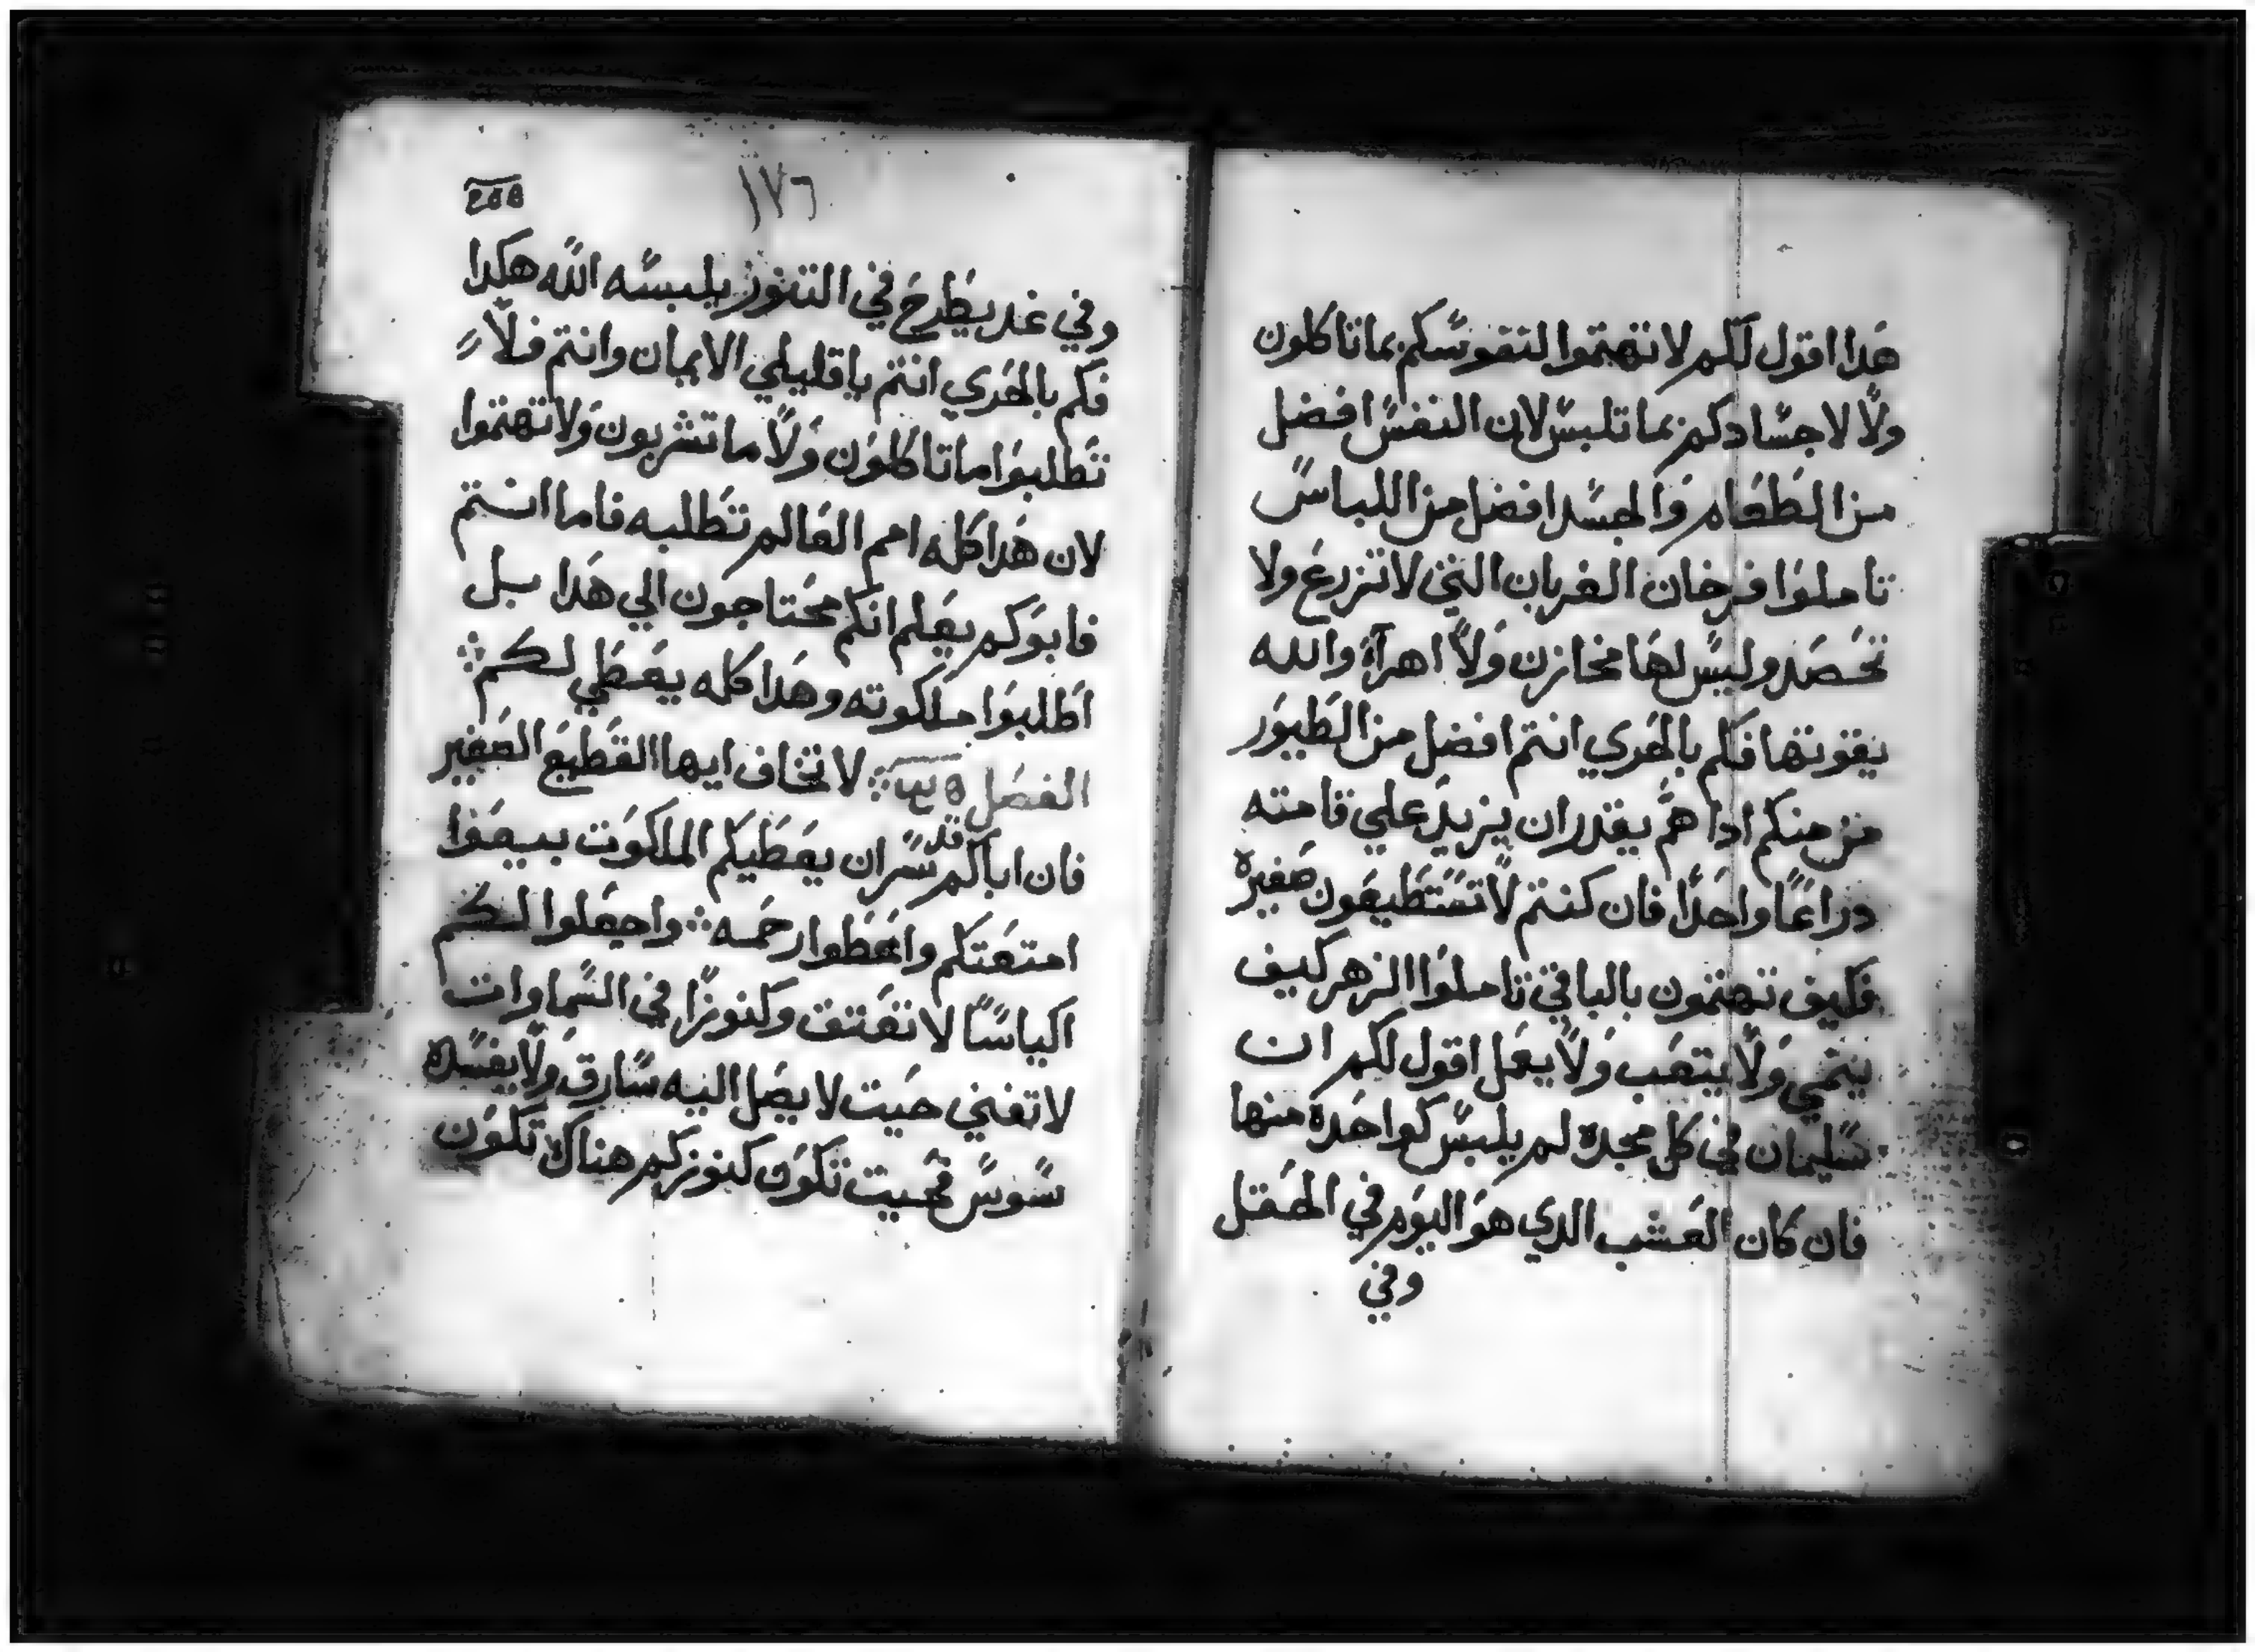 هدا اقول لكم لا تهتموا لنفوسكم بما تاكلون
ولا لاجسادكم بما تلبس لان النفس افضل
من الطعام والجسد افضل من اللباس
تاملوا فرخان الغربان التي لا تزرع ولا
تحصد وليس لها مخازن ولا اهرآء والله
يقوتها فكم بالحري انتم افضل من الطيور
من منكم ادا هم يقدر ان يزيد علي قامته
دراعا واحدا فان كنتم لا تستطيعون صغيرة
فكيف تهتمون بالباقي تاملوا الزهر كيف
ينمي ولا يتعب ولا يعل اقول لكم ان
سليمان في كل مجده لم يلبس كواحدة منها
فان كان العشب الدي هو اليوم في الحقل
وفي
١٧٦
وفي غد يطرح في التنور يلبسه الله هكدا
فكم بالحري انتم يا قليلي الايمان وانتم فلا
تطلبوا ما تاكلون ولا ما تشربون ولا تهتموا
لان هدا كله امم العالم تطلبه فاما انتم
فابوكم يعلم انكم محتاجون الي هدا بل
اطلبوا ملكوته وهدا كله يعطي لكم
الفصل لا تخاف ايها القطيع الصغير
فان اباكم قد سر ان يعطيكم الملكوت بيعوا
امتعتكم واعطوا رحمه واجعلوا لكم
اكياسا لا تعتق وكنوزا في السماوات
لا تفني حيت لا يصل اليه سارق ولا يفسده
سوس فحيت تكون كنوزكم هناك تكون